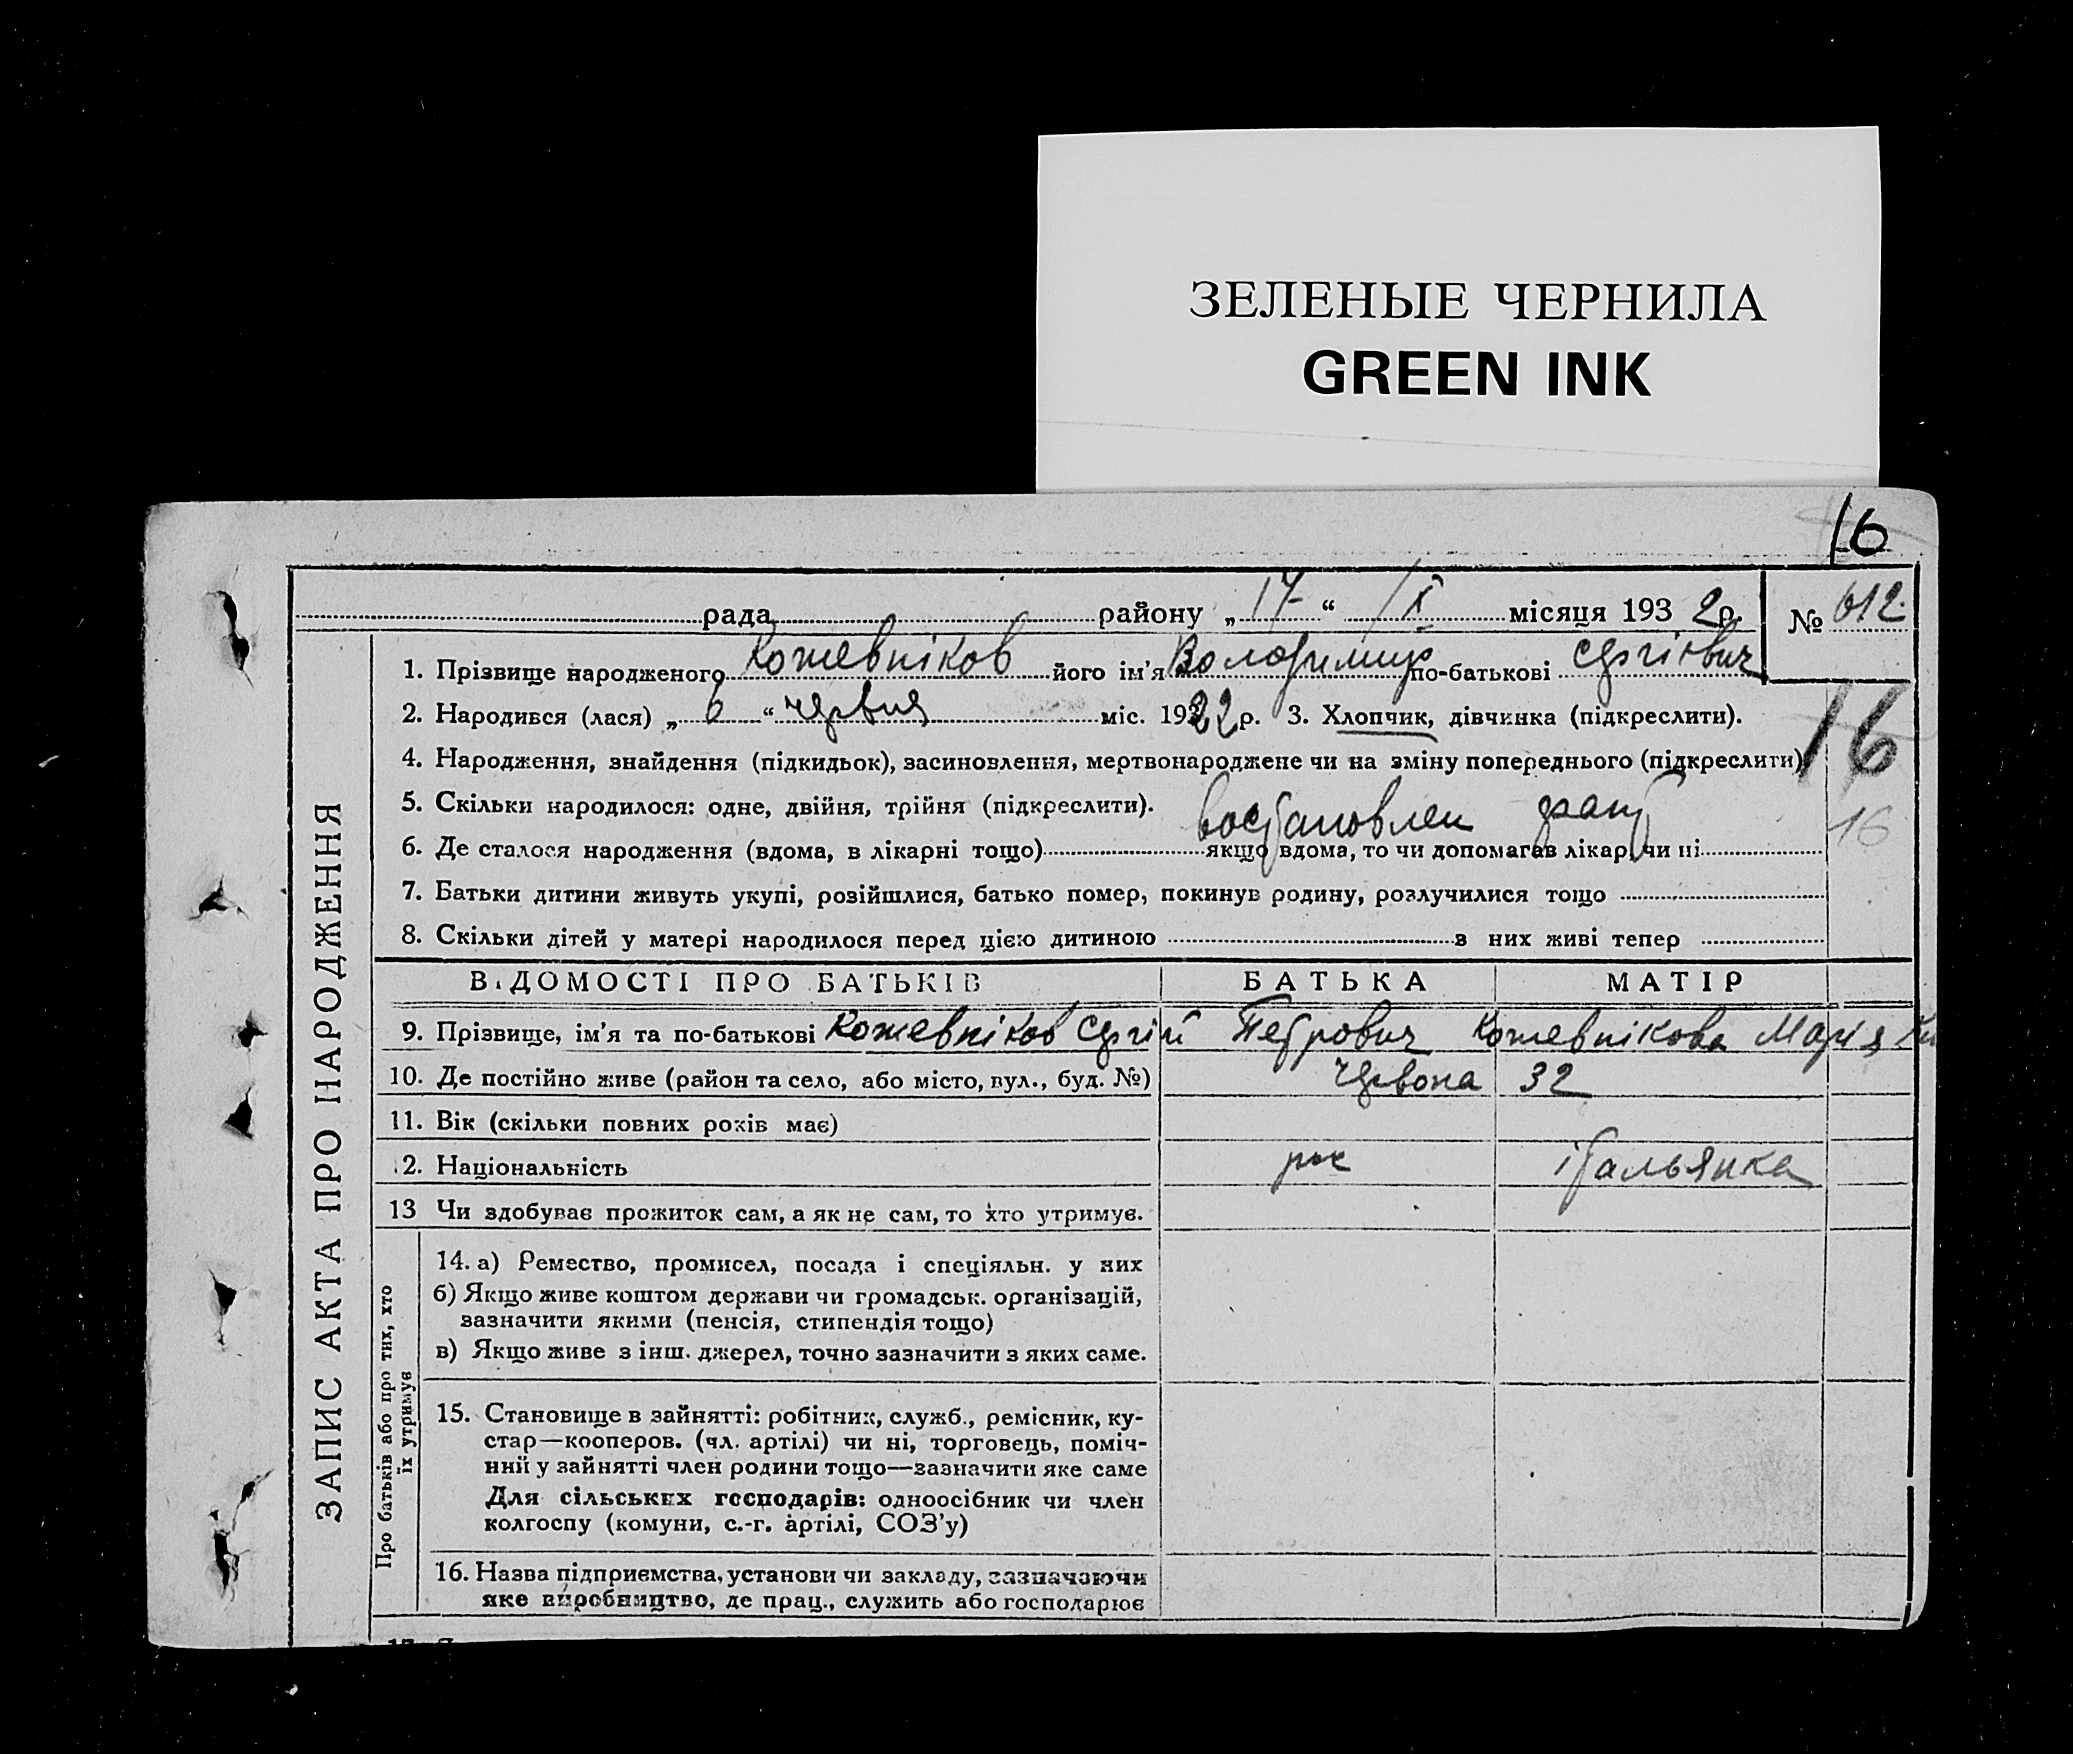 ЗЕЛЕНЫЕ ЧЕРНИЛА
GREEN INK
16
рада района району „ 17 “ IX місяця 1932 р. № 612
1. Прізвище народженого Кожевніков його ім'я Володимир по-батькові Сергійович
2. Народився (лася) „ 6 “ червня міс. 1922 р. 3. Хлопчик, дівчинка (підкреслити).
16
4. Народження, знайдення (підкидьок), засиновлення, мертвонароджене чи на зміну попереднього (підкреслити)
5. Скільки народилося: одне, двійня, трійня (підкреслити).
востановлен факт
16
6. Де сталося народження (вдома, в лікарні тощо) якщо вдома, то чи допомагав лікар чи ні
7. Батьки дитини живуть укупі, розійшлися, батько помер, покинув родину, розлучилися тощо
8. Скільки дітей у матері народилося перед цією дитиною в них живі тепер
ВІДОМОСТІ ПРО БАТЬКІВ БАТЬКА МАТІР
9. Прізвище, ім'я та по-батькові Кожевніков Сергій Петрович Кожевнікова Марія
10. Де постійно живе (район та село, або місто, вул., буд. №) Червона 32
11. Вік (скільки повних років має)
12. Національність рос італьянка
13 Чи здобуває прожиток сам, а як не сам, то хто утримує.
14. а) Ремество, промисел, посада і спеціяльн. у них
б) Якщо живе коштом держави чи громадськ. організацій,
зазначити якими (пенсія, стипендія тощо)
в) Якщо живе з інш. джерел, точно зазначити з яких саме.
15. Становище в зайнятті: робітник, служб., ремісник, ку-
стар—кооперов. (чл. артілі) чи ні, торговець, поміч-
ний у зайнятті член родини тощо—зазначити яке саме
Для сільських господарів: одноосібник чи член
колгоспу (комуни, с.-г. артілі, СОЗ'у)
16. Назва підприємства, установи чи закладу, зазначаючи
яке виробництво, де прац., служить або господарює
ЗАПИС АКТА ПРО НАРОДЖЕННЯ
Про батьків або про тих, хто
їх утримує